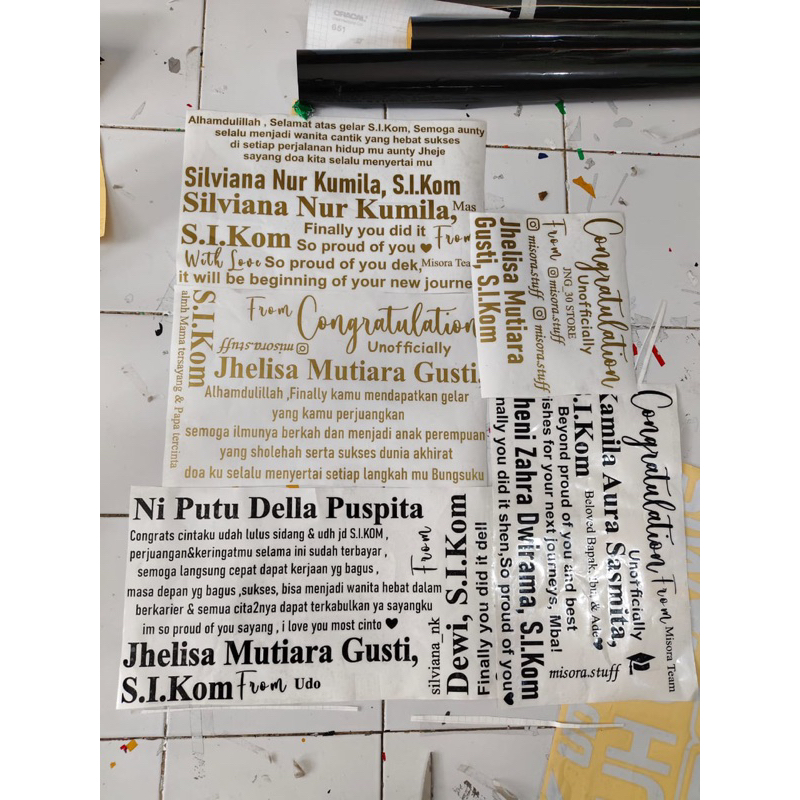 ORACAL
651
Alhamdulillah , Selamat atas gelar S.I.Kom, Semoga aunty
selalu menjadi wanita cantik yang hebat sukses
di setiap perjalanan hidup mu aunty Jheje
sayang doa kita selalu menyertai mu
Silviana Nur Kumila, S.I.Kom
Silviana Nur Kumila,
Mas
S.I.Kom
Finally you did it
So proud of you
From
With Love
So proud of you dek,
Misora Tea
it will be beginning of your new journe
S.I.Kom
From
Congratulation
misora.stuff
Unofficially
Jhelisa Mutiara Gusti,
Mama tersayang & Papa tercinta
Alhamdulillah ,Finally kamu mendapatkan gelar
yang kamu perjuangkan
semoga ilmunya berkah dan menjadi anak perempuan
yang sholehah serta sukses dunia akhirat
doa ku selalu menyertai setiap langkah mu Bungsuku
Congratulation
Unofficially
JNG_30 STORE
From
misora.stuff
misora.stuff
misora.stuff
Jhelisa Mutiara
Gusti, S.I.Kom
Ni Putu Della Puspita
Congrats cintaku udah lulus sidang & udh jd S.I.KOM ,
perjuangan&keringatmu selama ini sudah terbayar ,
semoga langsung cepat dapat kerjaan yg bagus ,
masa depan yg bagus ,sukses, bisa menjadi wanita hebat dalam
berkarier & semua cita2nya dapat terkabulkan ya sayangku
im so proud of you sayang , i love you most cinto
Jhelisa Mutiara Gusti,
S.I.Kom
From
Udo
From
silviana_nk
Dewi, S.I.Kom
Finally you did it dell
Congratulation
From
Misora Team
Unofficially
Kamila Aura Sasmita,
S.I.Kom
Beloved Bapak, Ibu, & Ade
Beyond proud of you and best
ishes for your next journeys, Mba!
heni Zahra Dwirama, S.I.Kom
nally you did it shen,So proud of you
misora.stuff